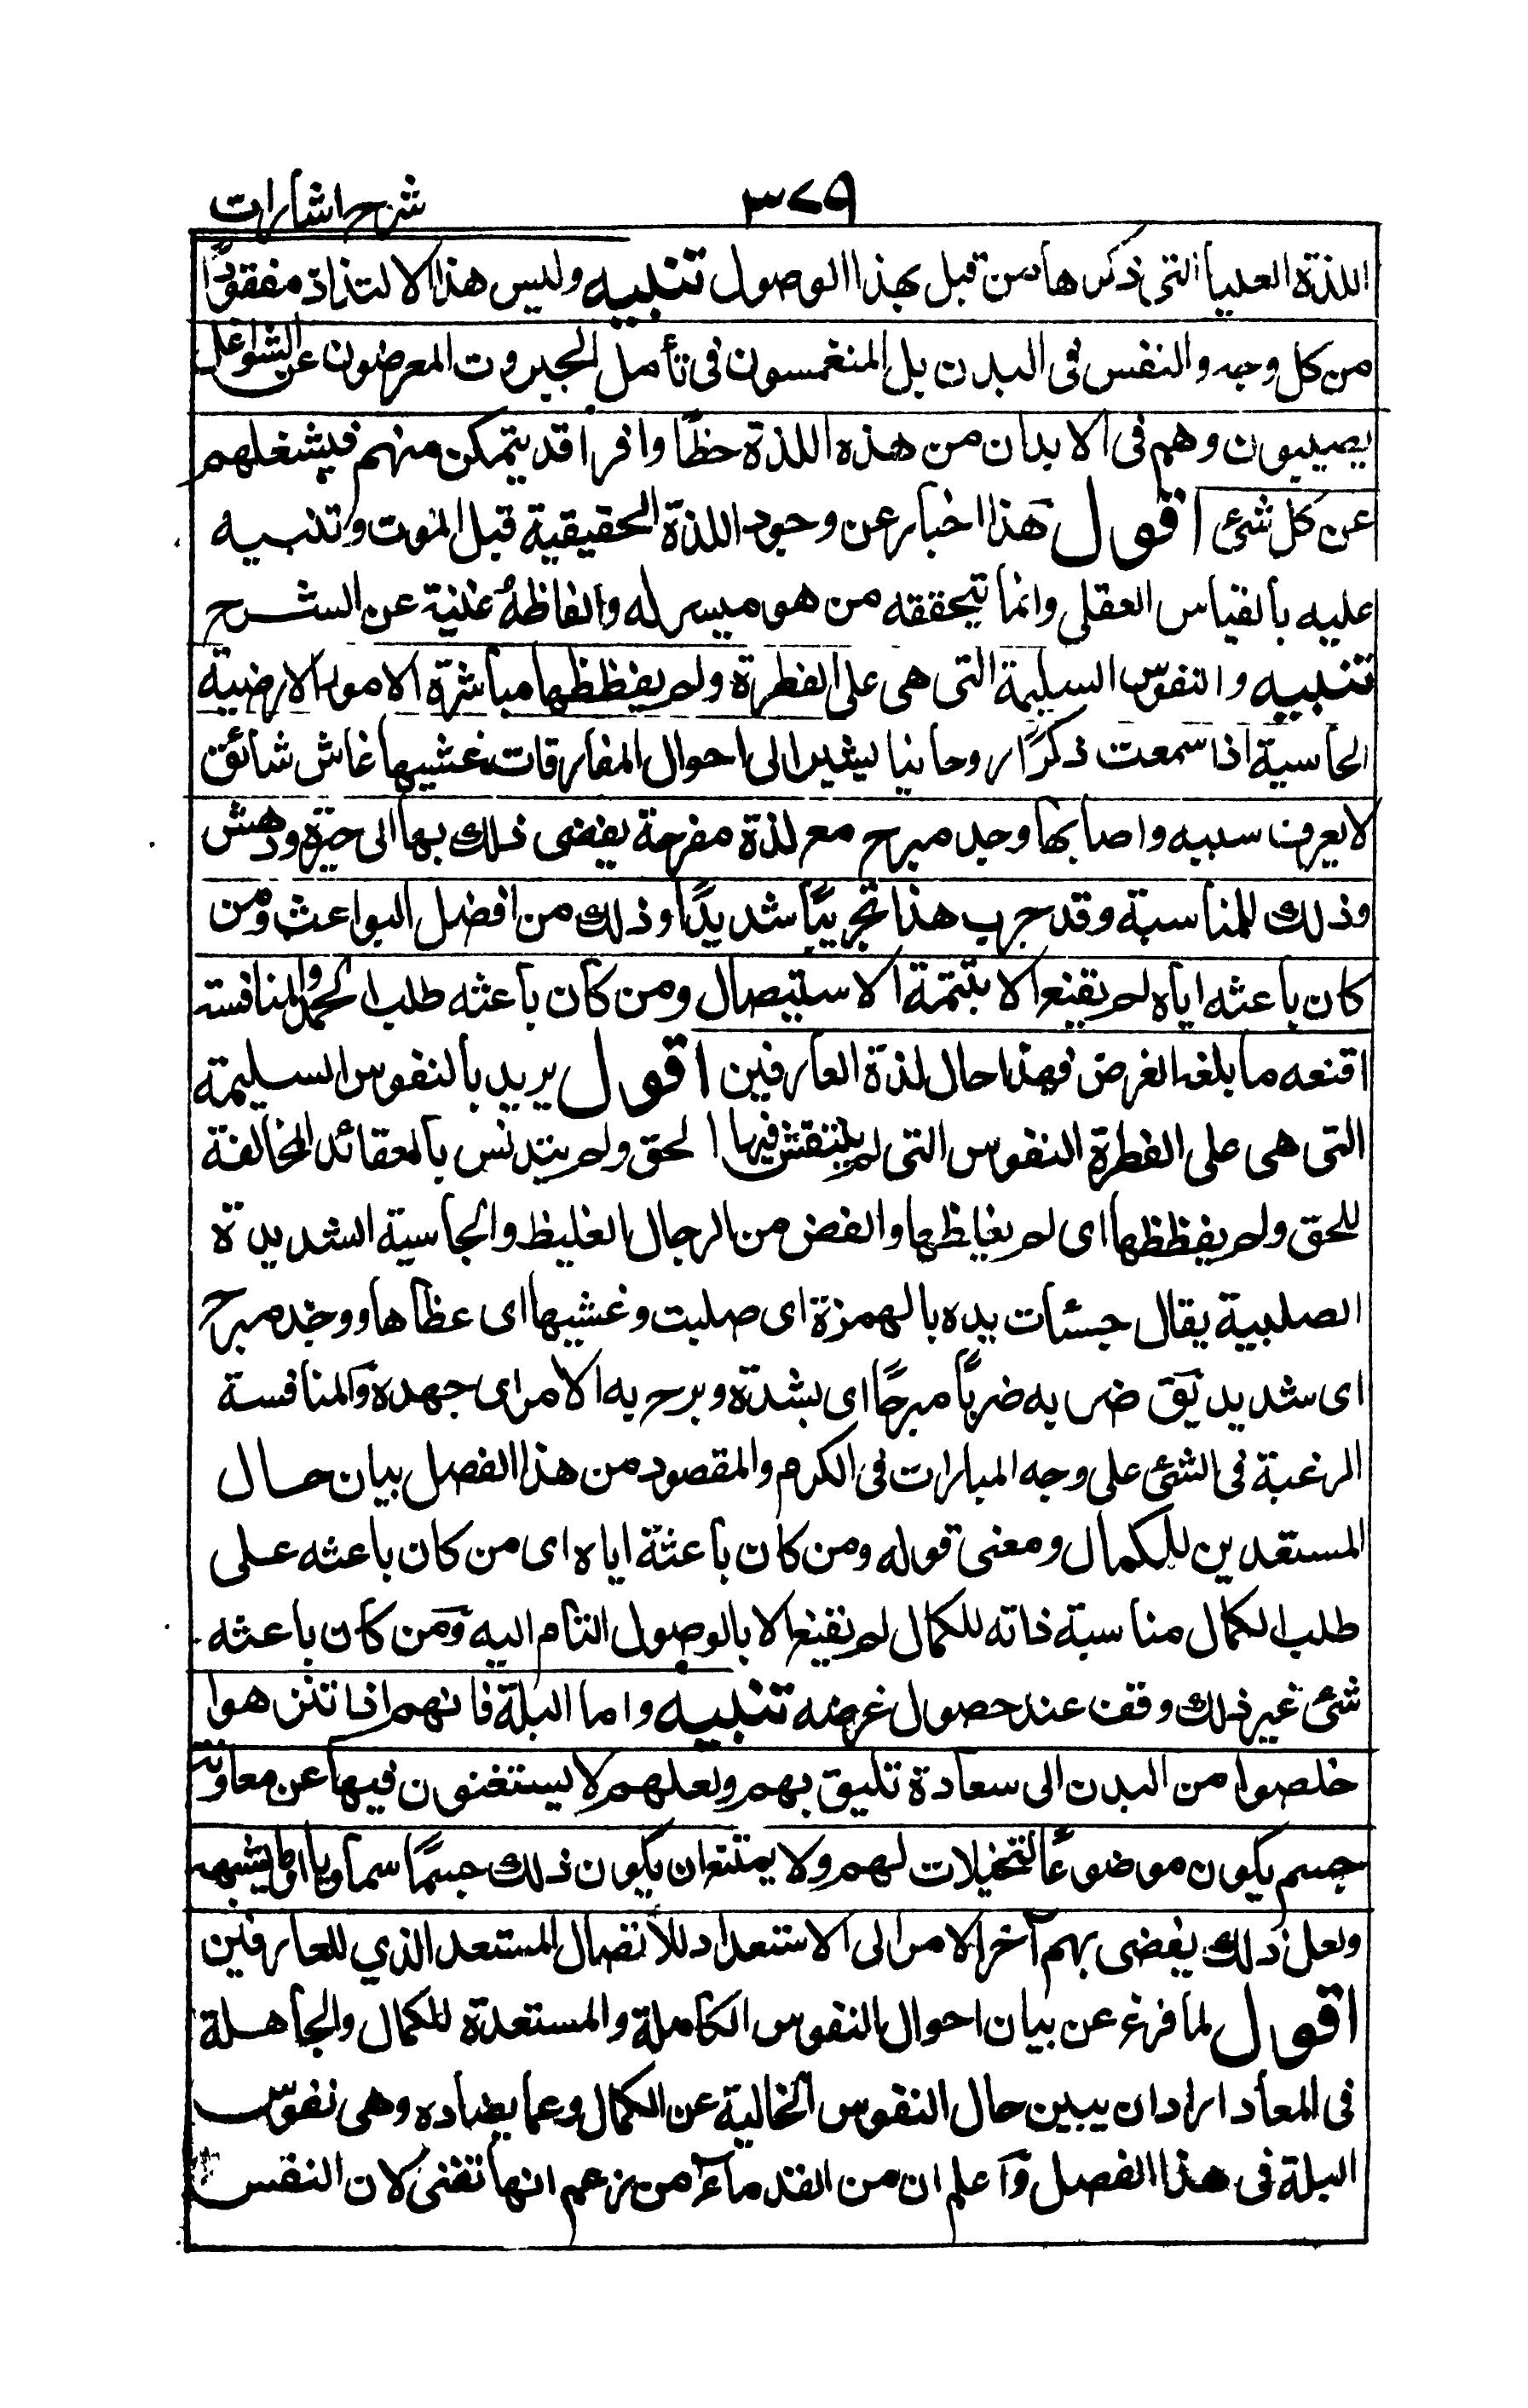 شرح اشارات
٣٧٩
اللذة العليا التى ذكرها من قبل بهذا الوصول تنبيه وليس هذا الالتذاذ مفقودًا
من كل وجه والنفس فى البدن بل المنغمسون فى تأمل الجبروت المعرضون عن الشواغل
يصيبون وهم فى الابدان من هذه اللذة حظًا وافرا قد يتمكن منهم فيشغلهم
عن كل شئ اقول هذا اخبار عن وجود اللذة الحقيقية قبل الموت وتنبيه
عليه بالقياس العقلى وانما يتحققه من هو ميسر له والفاظهُ غنية عن الشرح
تنبيه والنفوس السليمة التى هى على الفطرة ولم يفظظها مباشرة الامور الارضية
الجاسية اذا سمعت ذكرًا روحانيا يشير الى احوال المفارقات غشيها غاش شائق
لا يعرف سببه واصابها وجد مبرح مع لذة مفرحة يفضى ذلك بها الى حيرة ودهش
وذلك للمناسبة وقد جرب هذا تجريبًا شديدًا وذلك من افضل البواعث ومن
كان باعثه اياه لم يقنع الا بتتمة الاستيصال ومن كان باعثه طلب الحمد والمنافسة
اقنعه ما بلغه الغرض فهذا حال لذة العارفين اقول يريد بالنفوس السليمة
التى هى على الفطرة النفوس التى لم ينتقش فيها الحق ولم يتدنس بالعقائد المخالفة
للحق ولم يفظظها اى لم يغلظها والفض من الرجال الغليظ والجاسية الشديدة
الصلبية يقال جسئات يده بالهمزة اى صلبت وغشيها اى غطاها ووجد مبرح
اى شديد يق ضربه ضربًا مبرحًا اى بشدة وبرح به الامر اى جهده والمنافسة
الرغبة فى الشئ على وجه المبارات فى الكرم والمقصود من هذا الفصل بيان حال
المستعدين للكمال ومعنى قوله ومن كان باعثه اياه اى من كان باعثه على
طلب الكمال مناسبة ذاته للكمال لم يقنع الا بالوصول التام اليه ومن كان باعثه
شئ غير ذلك وقف عند حصول غرضه تنبيه واما البلة فانهم اذا تنزهوا
خلصوا من البدن الى سعادة تليق بهم ولعلهم لا يستغنون فيها عن معاونة
جسم يكون موضوعًا لتخيلات لهم ولا يمتنع ان يكون ذلك جسمًا سماويا او ما يشبهه
ولعل ذلك يفضى بهم آخر الامر الى الاستعداد للأتصال المستعد الذي للعارفين
اقول لما فرغ عن بيان احوال النفوس الكاملة والمستعدة للكمال والجاهلة
فى المعاد اراد ان يبين حال النفوس الخالية عن الكمال وعما يضاده وهى نفوس
البلة فى هذا الفصل وآعلم ان من القدماء من زعم انها تفنى لان النفس